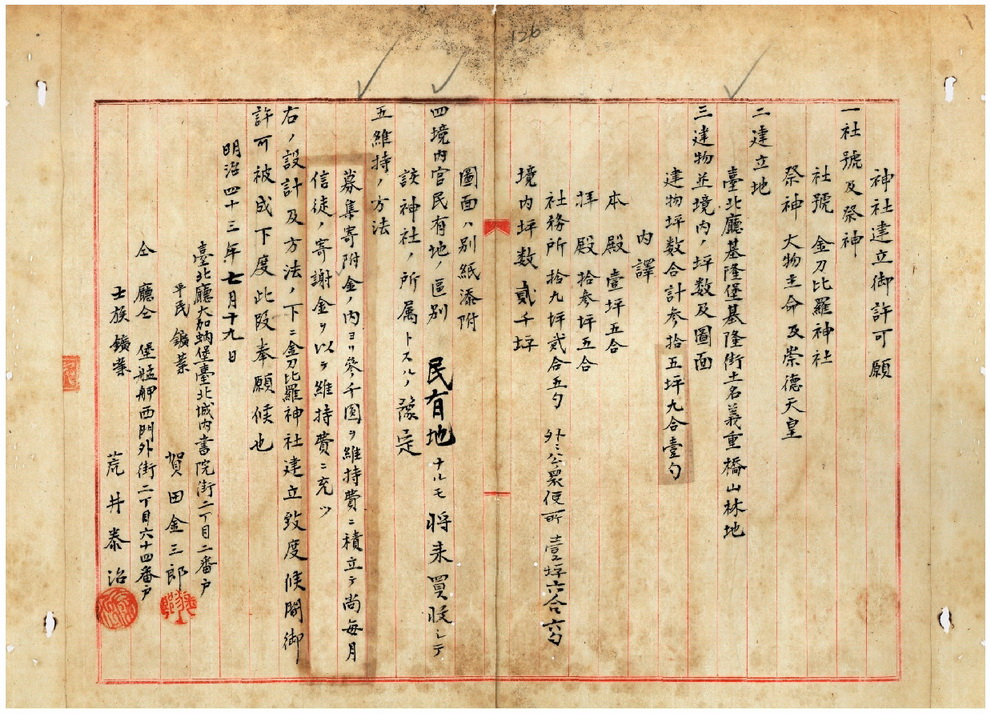 126
神社建立御許可願
一社號及祭神
社號 金刀比羅神社
祭神 大物主命及崇德天皇
二建立地
臺北廳基隆堡基隆街土名義重橋山林地
三建物並境内ノ坪数及圖面
建物坪数合計参拾五坪九合壹勺
内譯
本殿 壹坪五合
拝殿 拾参坪五合
社務所 拾九坪貳合五勺 外ニ公衆便所 壹坪六合六勺
境内坪数貳千坪
圖面ハ別紙添附
四境内官民有地ノ區別 民有地ナルモ将来買收シテ
該神社ノ所属トスルノ豫定
五維持ノ方法
募集寄附金ノ内ヨリ参千圓ヲ維持費ニ積立テ尚毎月
信徒ノ寄謝金ヲ以テ維持費ニ充ツ
右ノ設計及方法ノ下ニ金刀比羅神社建立致度候間御
許可被成下度此段奉願候也
明治四十三年七月十九日
臺北廳大加蚋堡臺北城内書院街二丁目二番戸
平民 鑛業 賀田金三郎
仝廳仝堡艋舺西門外街二丁目六十四番戸
士族 鑛業 荒井泰治